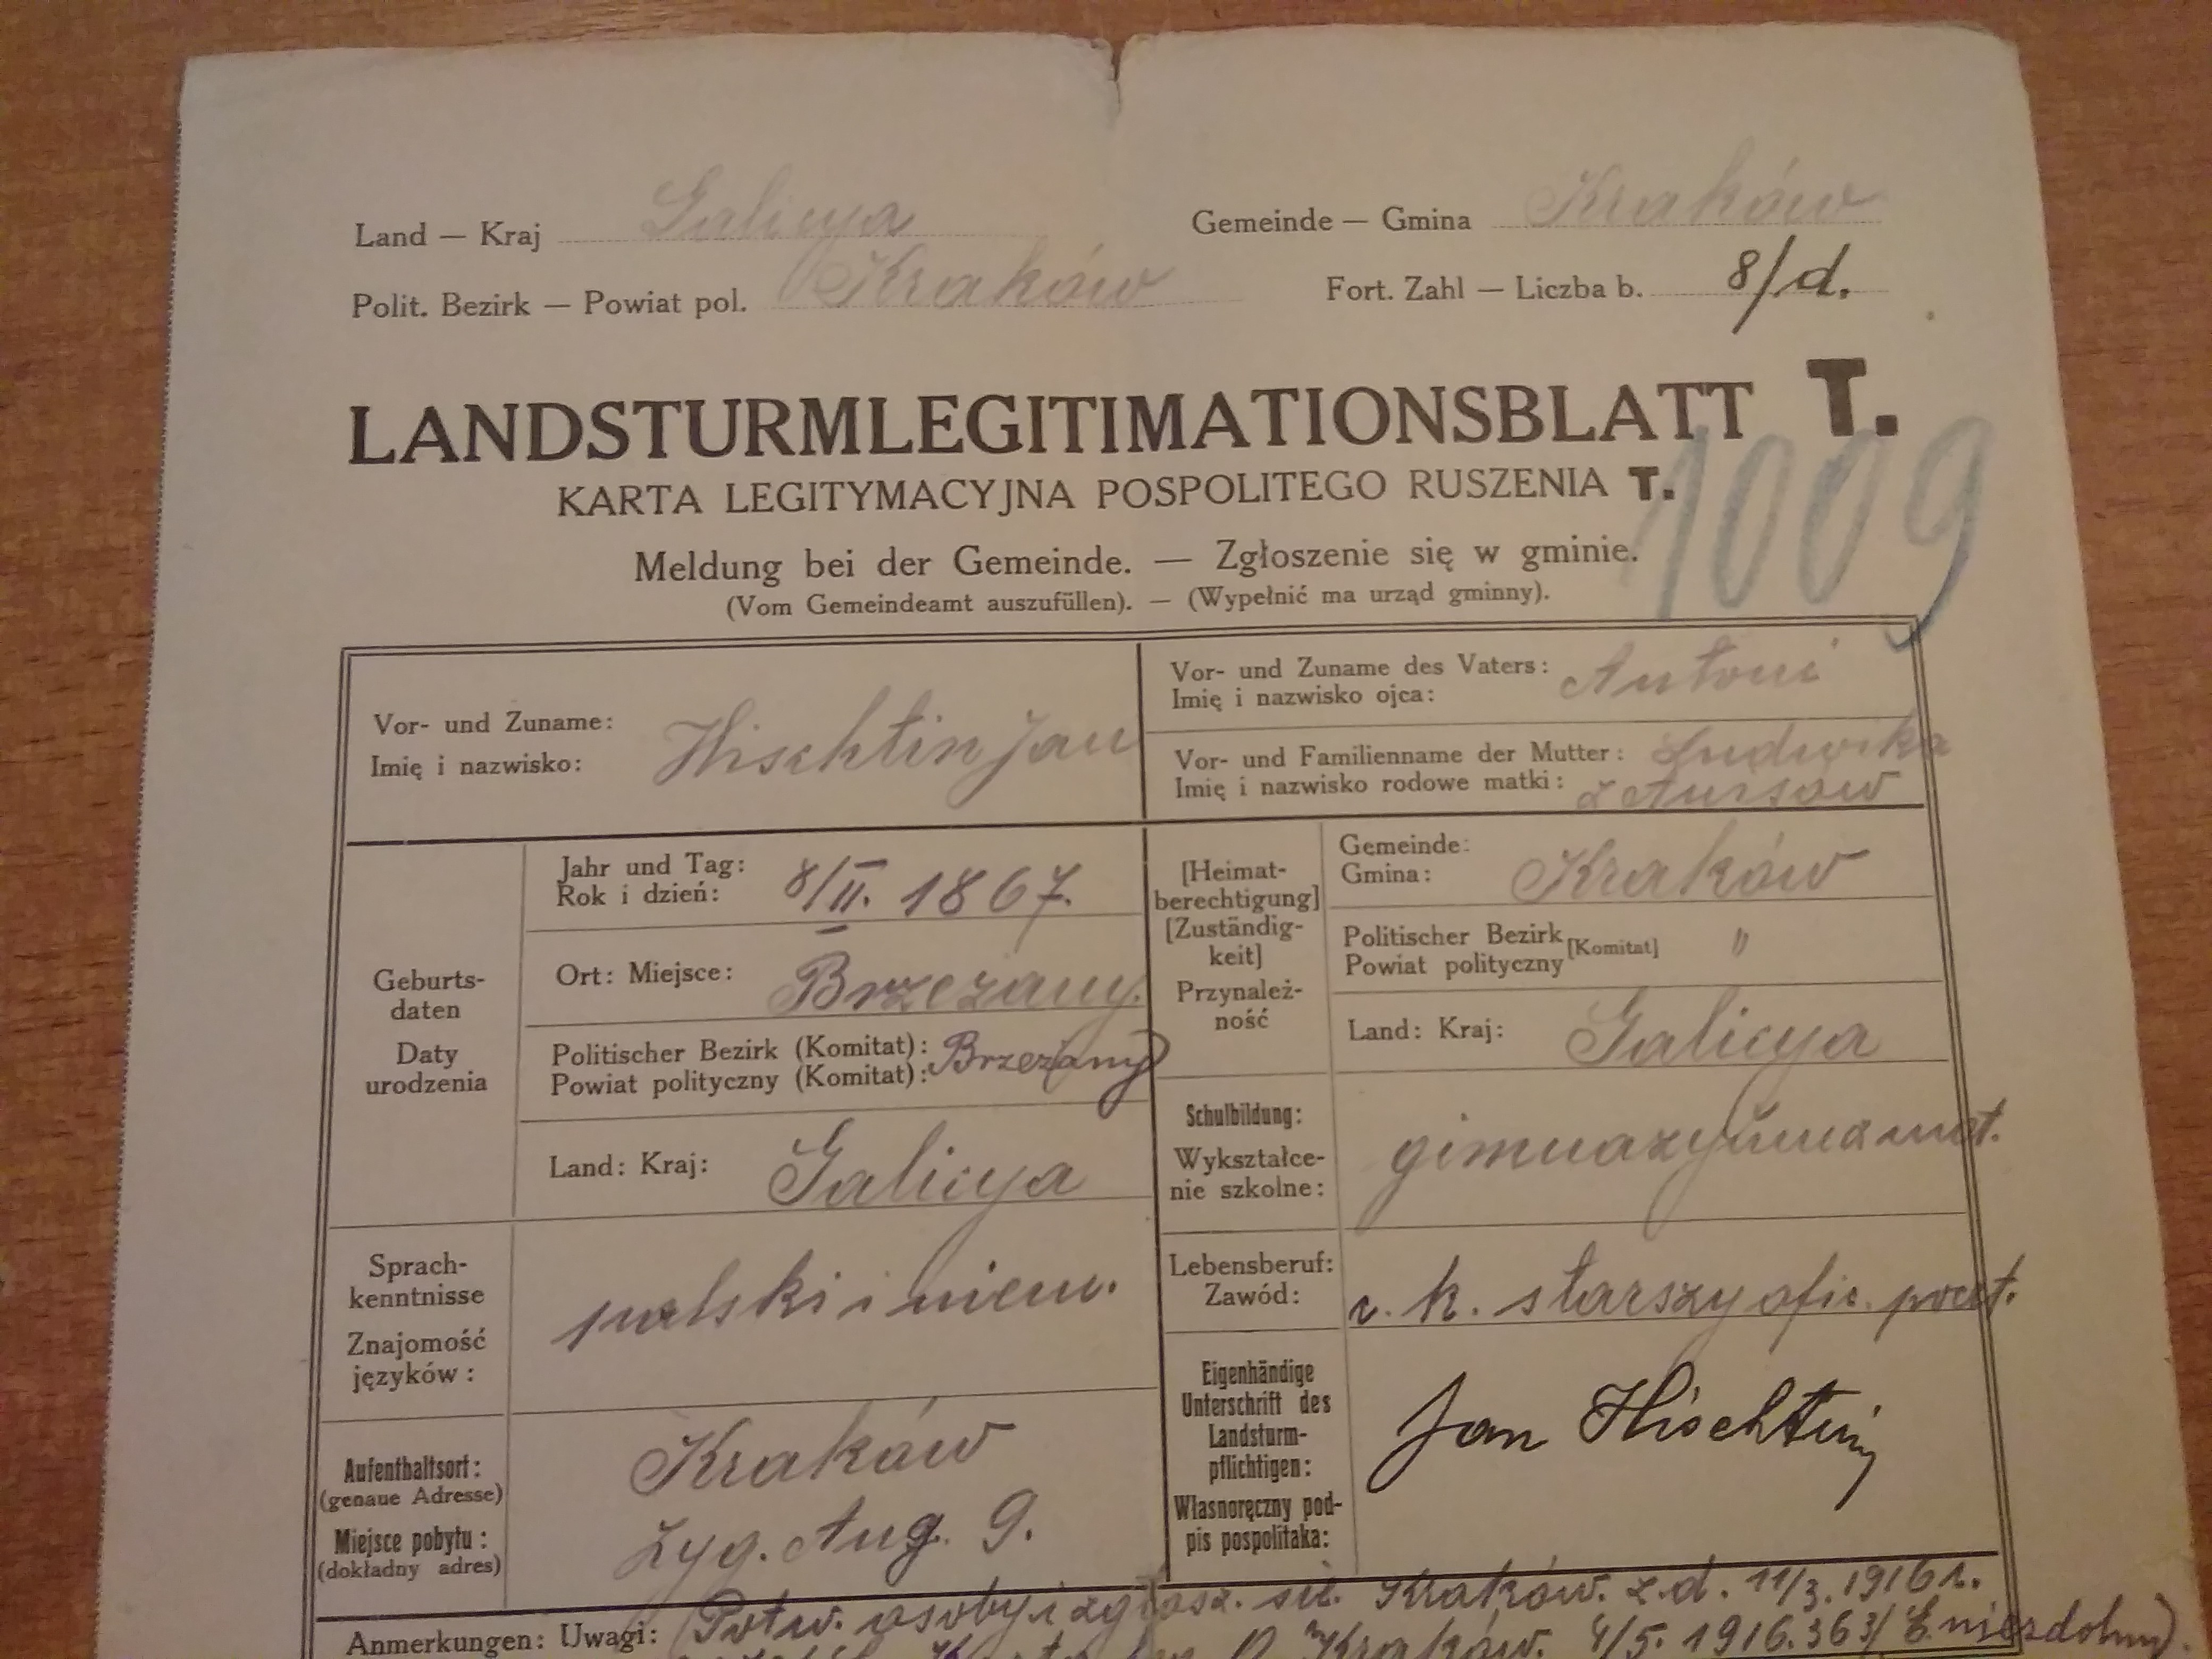 Land — Kraj Galicya
Gemeinde — Gmina Kraków
Polit. Bezirk — Powiat pol. Kraków
Fort. Zahl — Liczba b. 8/d.
LANDSTURMLEGITIMATIONSBLATT T.
KARTA LEGITYMACYJNA POSPOLITEGO RUSZENIA T.
1009
Meldung bei der Gemeinde. — Zgłoszenie się w gminie.
(Vom Gemeindeamt auszufüllen). — (Wypełnić ma urząd gminny).
Vor- und Zuname:
Imię i nazwisko:
Hischtin Jan
Vor- und Zuname des Vaters:
Imię i nazwisko ojca:
Antoni
Vor- und Familienname der Mutter:
Imię i nazwisko rodowe matki:
Ludwika
z
Geburts-
daten
Daty
urodzenia
Jahr und Tag:
Rok i dzień:
8/II. 1867.
Ort: Miejsce: Brzezany.
Politischer Bezirk (Komitat):
Powiat polityczny (Komitat):
Brzeżany
Land: Kraj: Galicya
[Heimat-
berechtigung]
[Zuständig-
keit]
Przynależ-
ność
Gemeinde:
Gmina:
Kraków
Politischer Bezirk
Powiat polityczny
[Komitat]
"
Land: Kraj: Galicya
Sprach-
kenntnisse
Znajomość
języków:
polski i niem.
Schulbildung:
Wykształce-
nie szkolne:
gimnazyum mat.
Lebensberuf:
Zawód:
c. k. starszy ofic. poczt.
Aufenthaltsort:
(genaue Adresse)
Miejsce pobytu:
(dokładny adres)
Kraków
Zyg. Aug. 9.
Eigenhändige
Unterschrift des
Landsturm-
pflichtigen:
Własnoręczny pod-
pis pospolitaka:
Jan Hischtin
Anmerkungen: Uwagi:
Potw. osoby i zgłosz. się. Kraków. z. d. 11/3. 1916 r.
Kraków. 4/5. 1916. 363/ niezdolny).